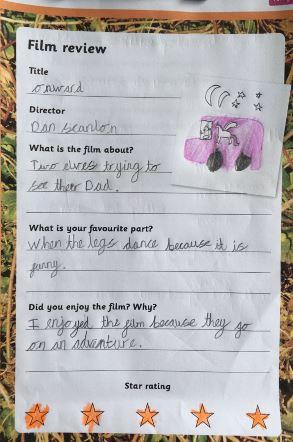 Film review
Title
onward
Director
Dan scanlon
What is the film about?
Two elves trying to
see their Dad.
What is your favourite part?
When the legs dance because it is
funny.
Did you enjoy the film? Why?
I enjoyed the film because they go
on an adventure.
Star rating